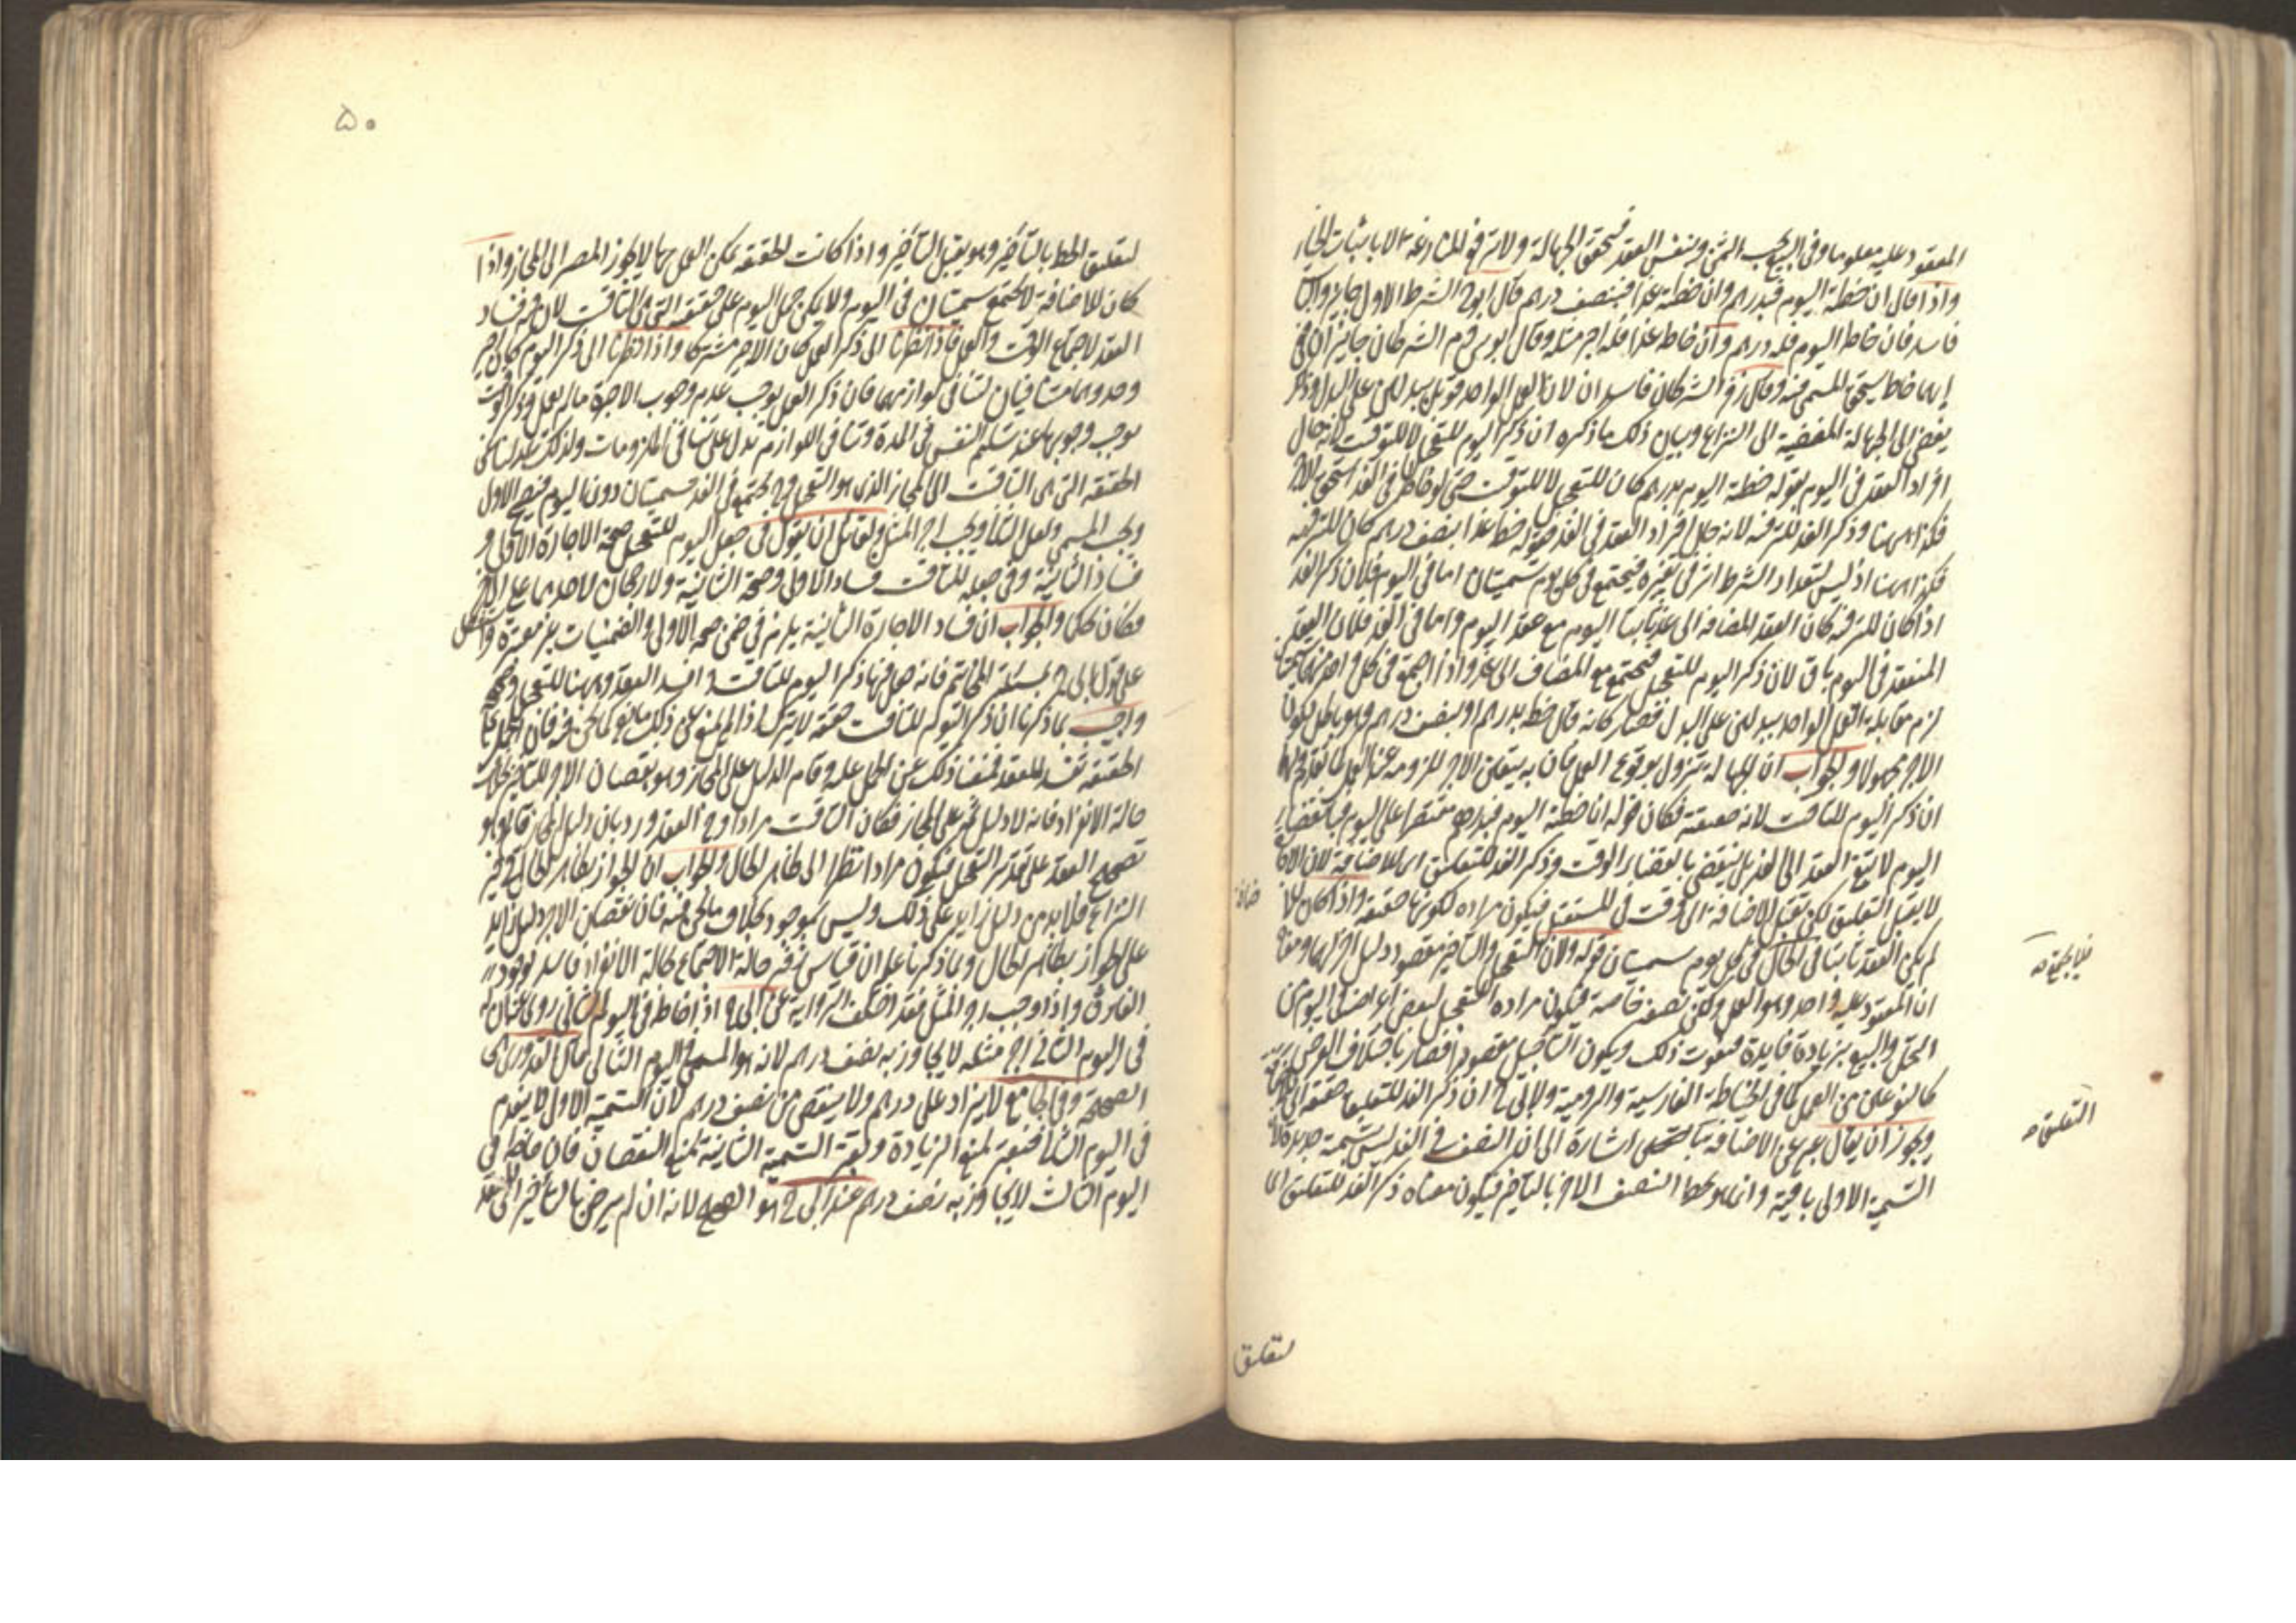 المعقود عليه معلوما وفى البيع يجب الثمن بنفس العقد فيتحقق الجهالة ولا ترتفع المنازعة الا باثبات الخيار
واذا قال ان خطته اليوم فبدرهم وان خطته غدا فبنصف درهم قال ابو ح الشرط الاول جايز والثانى
فاسد فان خاط اليوم فله درهم وان خاط غدا فله اجر مثله وقال ابو يوسف وم الشرطان جايزان ففى
ايهما خاط يستحق المسمى فيه وقال زفر الشرطان فاسدان لان العمل الواحد قوبل ببدلين على البدل وذلك
يفضى الى الجهالة المفضية الى النزاع وبيان ذلك ما ذكره ان ذكر اليوم للتعجيل لا للتوقيت لانه حال
افراد العقد فى اليوم بقوله خطه اليوم بدرهم كان للتعجيل لا للتوقيت حتى لو خاطه فى الغد استحق الاجر
فكذا ههنا وذكر الغد للترفيه لانه حال افراد العقد فى الغد بقوله خطه غدا بنصف درهم كان للترفيه
فكذا ههنا اذ ليس لتعداد الشرط اثر فى تغيره فيجتمع فى كل يوم تسميتان اما فى اليوم فلان ذكر الغد
اذا كان للترفيه كان العقد المضاف الى غد ثابتا اليوم مع عقد اليوم واما فى الغد فلان العقد
المنعقد فى اليوم باق لان ذكر اليوم للتعجيل فيجتمع مع المضاف الى غد واذا اجتمع فى كل واحد منهما تسميتان
لزم مقابلة العمل الواحد ببدلين على البدل فصار كانه قال خطه بدرهم او بنصف درهم وهو باطل لكون
الاجر مجهولا والجواب ان الجهالة تزول بوقوع العمل فان به يتعين الاجر للزومه عند العمل كما تقدم ولهما
ان ذكر اليوم للتاقيت لانه حقيقة فكان قوله ان خطته اليوم فبدرهم مقتصرا على اليوم فبانقضاء
اليوم لا يبقى العقد الى الغد بل ينقضى بانقضاء الوقت وذكر الغد للتعليق اى للاضافة لان الاجارة
لا يقبل التعليق لكن تقبل الاضافة الى وقت فى المستقبل فيكون مراده لكونها حقيقة واذا كان للاضافة
لم يكن العقد ثابتا فى الحال فى كل يوم تسميتان قوله ولان التعجيل والتاخير مقصود دليل اخر لهما ومعناه
ان المعقود عليه واحد وهو العمل ولكن بصفة خاصة فيكون مراده التعجيل لبعض اغراض فى اليوم من
التجمل والبيع بزيادة فايدة فيفوت ذلك ويكون التاجيل مقصودا فصار باختلاف الغرض
كالنوعين من العمل كما فى الخياطة الفارسية والرومية ولابى ح ان ذكر الغد للتعليق حقيقة
ويجوز ان يقال عبر عن الاضافة اشارة الى ان النصف فى الغد ليس بتسمية جديدة لان
التسمية الاولى باقية وانما هو لحط النصف الاخر بالتاخير فيكون معناه ذكر الغد للتعليق اى
فلا يجتمع صه
التعليق صه
لتعليق
٥٠
لتعليق الحط بالتاخير وهو يقبل التاخير واذا كانت الحقيقة يمكن العمل بها لا يجوز المصير الى المجاز واذا
كان للاضافة لا يجتمع تسميتان فى اليوم ولا يمكن حمل اليوم على حقيقته التى هى التاقيت لان فيه فساد
العقد لاجتماع الوقت والعمل فاذا نظرنا الى ذكر العمل كان الاجير مشتركا واذا نظرنا الى ذكر اليوم كان اجير
وحد وهما متنافيان لتنافى لوازمهما فان ذكر العمل يوجب عدم وجوب الاجرة ما لم يعمل وذكر الوقت
يوجب وجوبها عند تسليم النفس فى المدة وتنافى اللوازم تدل على تنافى الملزومات ولذلك عدلنا عن
الحقيقة التى هى التاقيت الى المجاز الذى هو التعجيل وح يجتمع فى الغد تسميتان دون اليوم فيصح الاول
ويجب المسمى ويفسد الثانى ويجب اجر المثل ولقائل ان يقول فى جعل اليوم للتعجيل صحة الاجارة الاولى و
فساد الثانية وفى جعله للتاقيت فساد الاولى وصحة الثانية ولا رجحان لاحدهما على الاخر
فكان تحكما والجواب ان فساد الاجارة الثانية يلزم فى ضمن صحة الاولى والضمنيات غير معتبرة واستشكل
على قول ابى ح بمسئلة المخاتيم فانه جعل فيها ذكر اليوم للتاقيت وافسد العقد وههنا للتعجيل وصححه
واجيب بما ذكرنا ان ذكر اليوم للتاقيت حقيقة لا يترك اذا لم يمنع عن ذلك مانع كما نحن فيه فان الحمل على
الحقيقة تفسد العقد فمنعنا ذلك عن الحمل عليه وقام الدليل على المجاز وهو نقصان الاجر للتاخير بخلاف
حالة الانفراد فانه لا دليل ثمه على المجاز فكان التاقيت مرادا وفسد العقد ورد بان دليل المجاز قائم وهو
تصحيح العقد على تقدير التعجيل فيكون مرادا نظرا الى ظاهر الحال والجواب ان الجواز بظاهر الحال فى حيز
النزاع فلا بد من دليل زايد على ذلك وليس بموجود بخلاف ما نحن فيه فان نقصان الاجر دليل زايد
على الجواز بظاهر الحال وبما ذكرنا علم ان قياس زفر حالة الاجتماع بحالة الانفراد فاسد لوجود
الفارق واذا وجب اجر المثل فقد اختلف الرواية عن ابى ح اذا خاط فى اليوم الثانى روى عنه ان
فى اليوم الثانى اجر مثله لا يجاوز به نصف درهم لانه هو المسمى فى اليوم الثانى قال القدورى هى
الصحيحة وفى الجامع لا يزاد على درهم ولا ينقص من نصف درهم لان التسمية الاولى لا ينعدم
فى اليوم الثانى فتعتبر لمنع الزيادة وتعتبر التسمية الثانية لمنع النقصان فان خاطه فى
اليوم الثالث لا يجاوز به نصف درهم عند ابى ح هو الصحيح لانه اذا لم يرض بالتاخير الى الغد